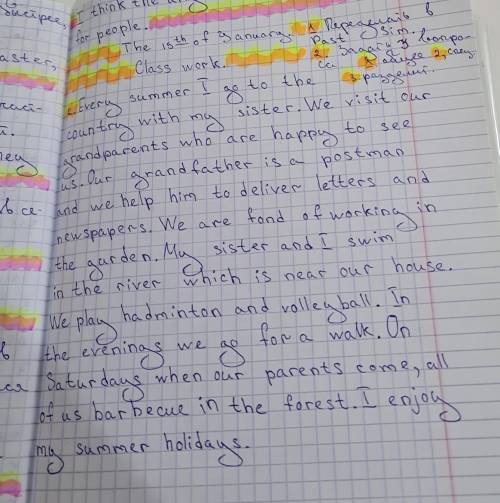 think the
for people.
The 15th of January 1. Переделать в
Past Sim.
Class work. 2. Задать 3 вопро-
са 1. общее 2. спец
3. раздели.
2. Every summer I go to the
country with my sister. We visit our
grandparents who are happy to see
us. Our grandfather is a postman
and we help him to deliver letters and
newspapers. We are fond of working in
the garden. My sister and I swim
in the river which is near our house.
We play badminton and volleyball. In
the evenings we go for a walk. On
Saturdays when our parents come, all
of us barbecue in the forest. I enjoy
my summer holidays.